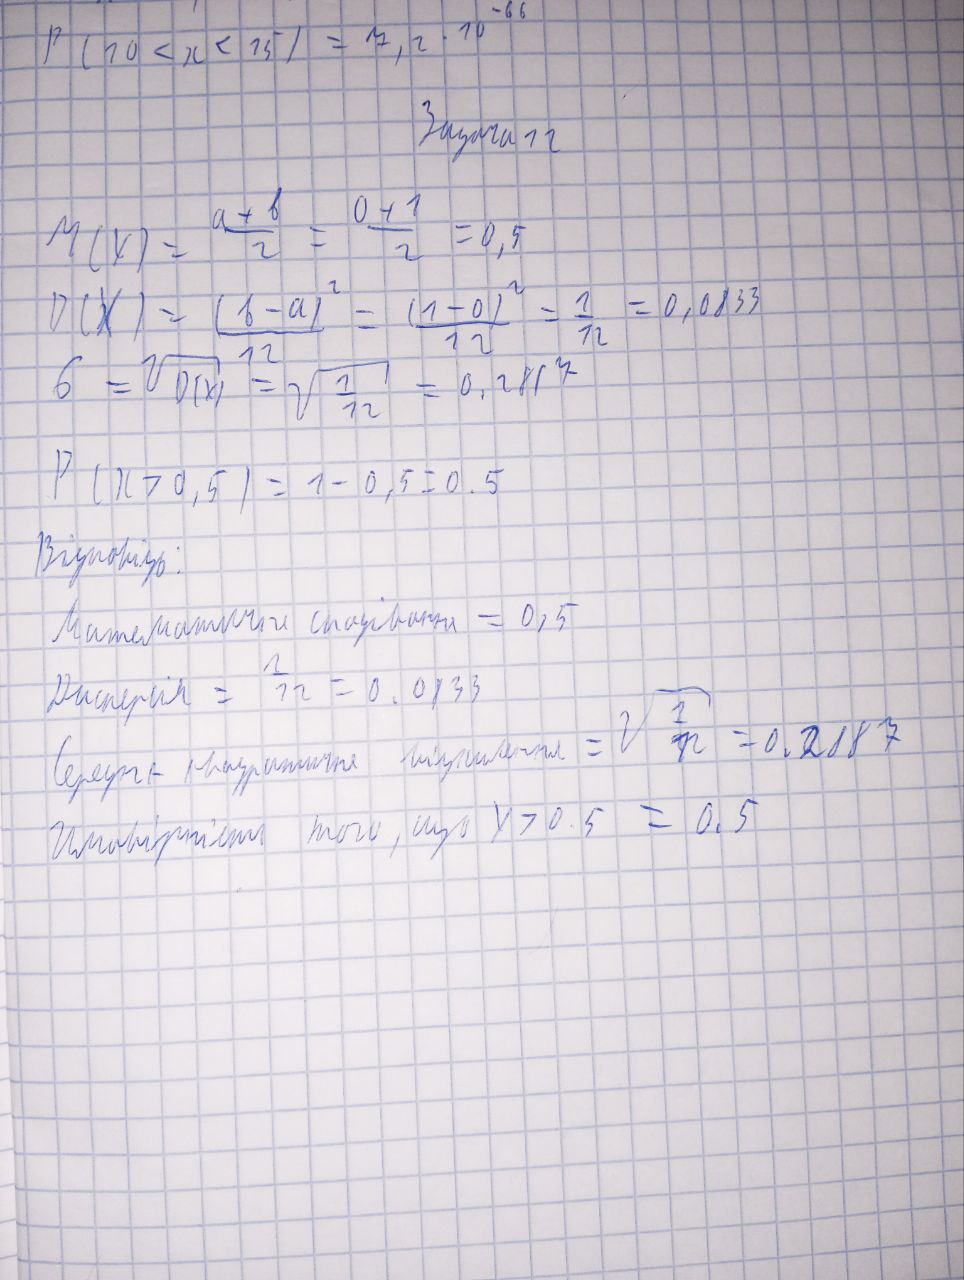 P(10 < x < 15) = 7,2 · 10^-66
Задача 12
M(X) = a+b/2 = 0+1/2 = 0,5
D(X) = (b-a)²/12 = (1-0)²/12 = 1/12 = 0,0833
б = √D(x) = √1/12 = 0.2887
P(x > 0,5) = 1 - 0,5 = 0.5
Відповідь:
Математичне сподівання = 0,5
Дисперсія = 1/12 = 0.0833
Середнє квадратичне відхилення = √1/12 = 0.2887
Ймовірність того, що X > 0.5 = 0.5